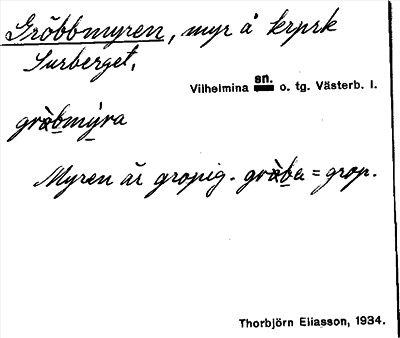 Gröbbmyren, myr å krprk
Surberget,
sn.
Vilhelmina o. tg. Västerb. l.
Myren är gropig. = grop.
Thorbjörn Eliasson, 1934.